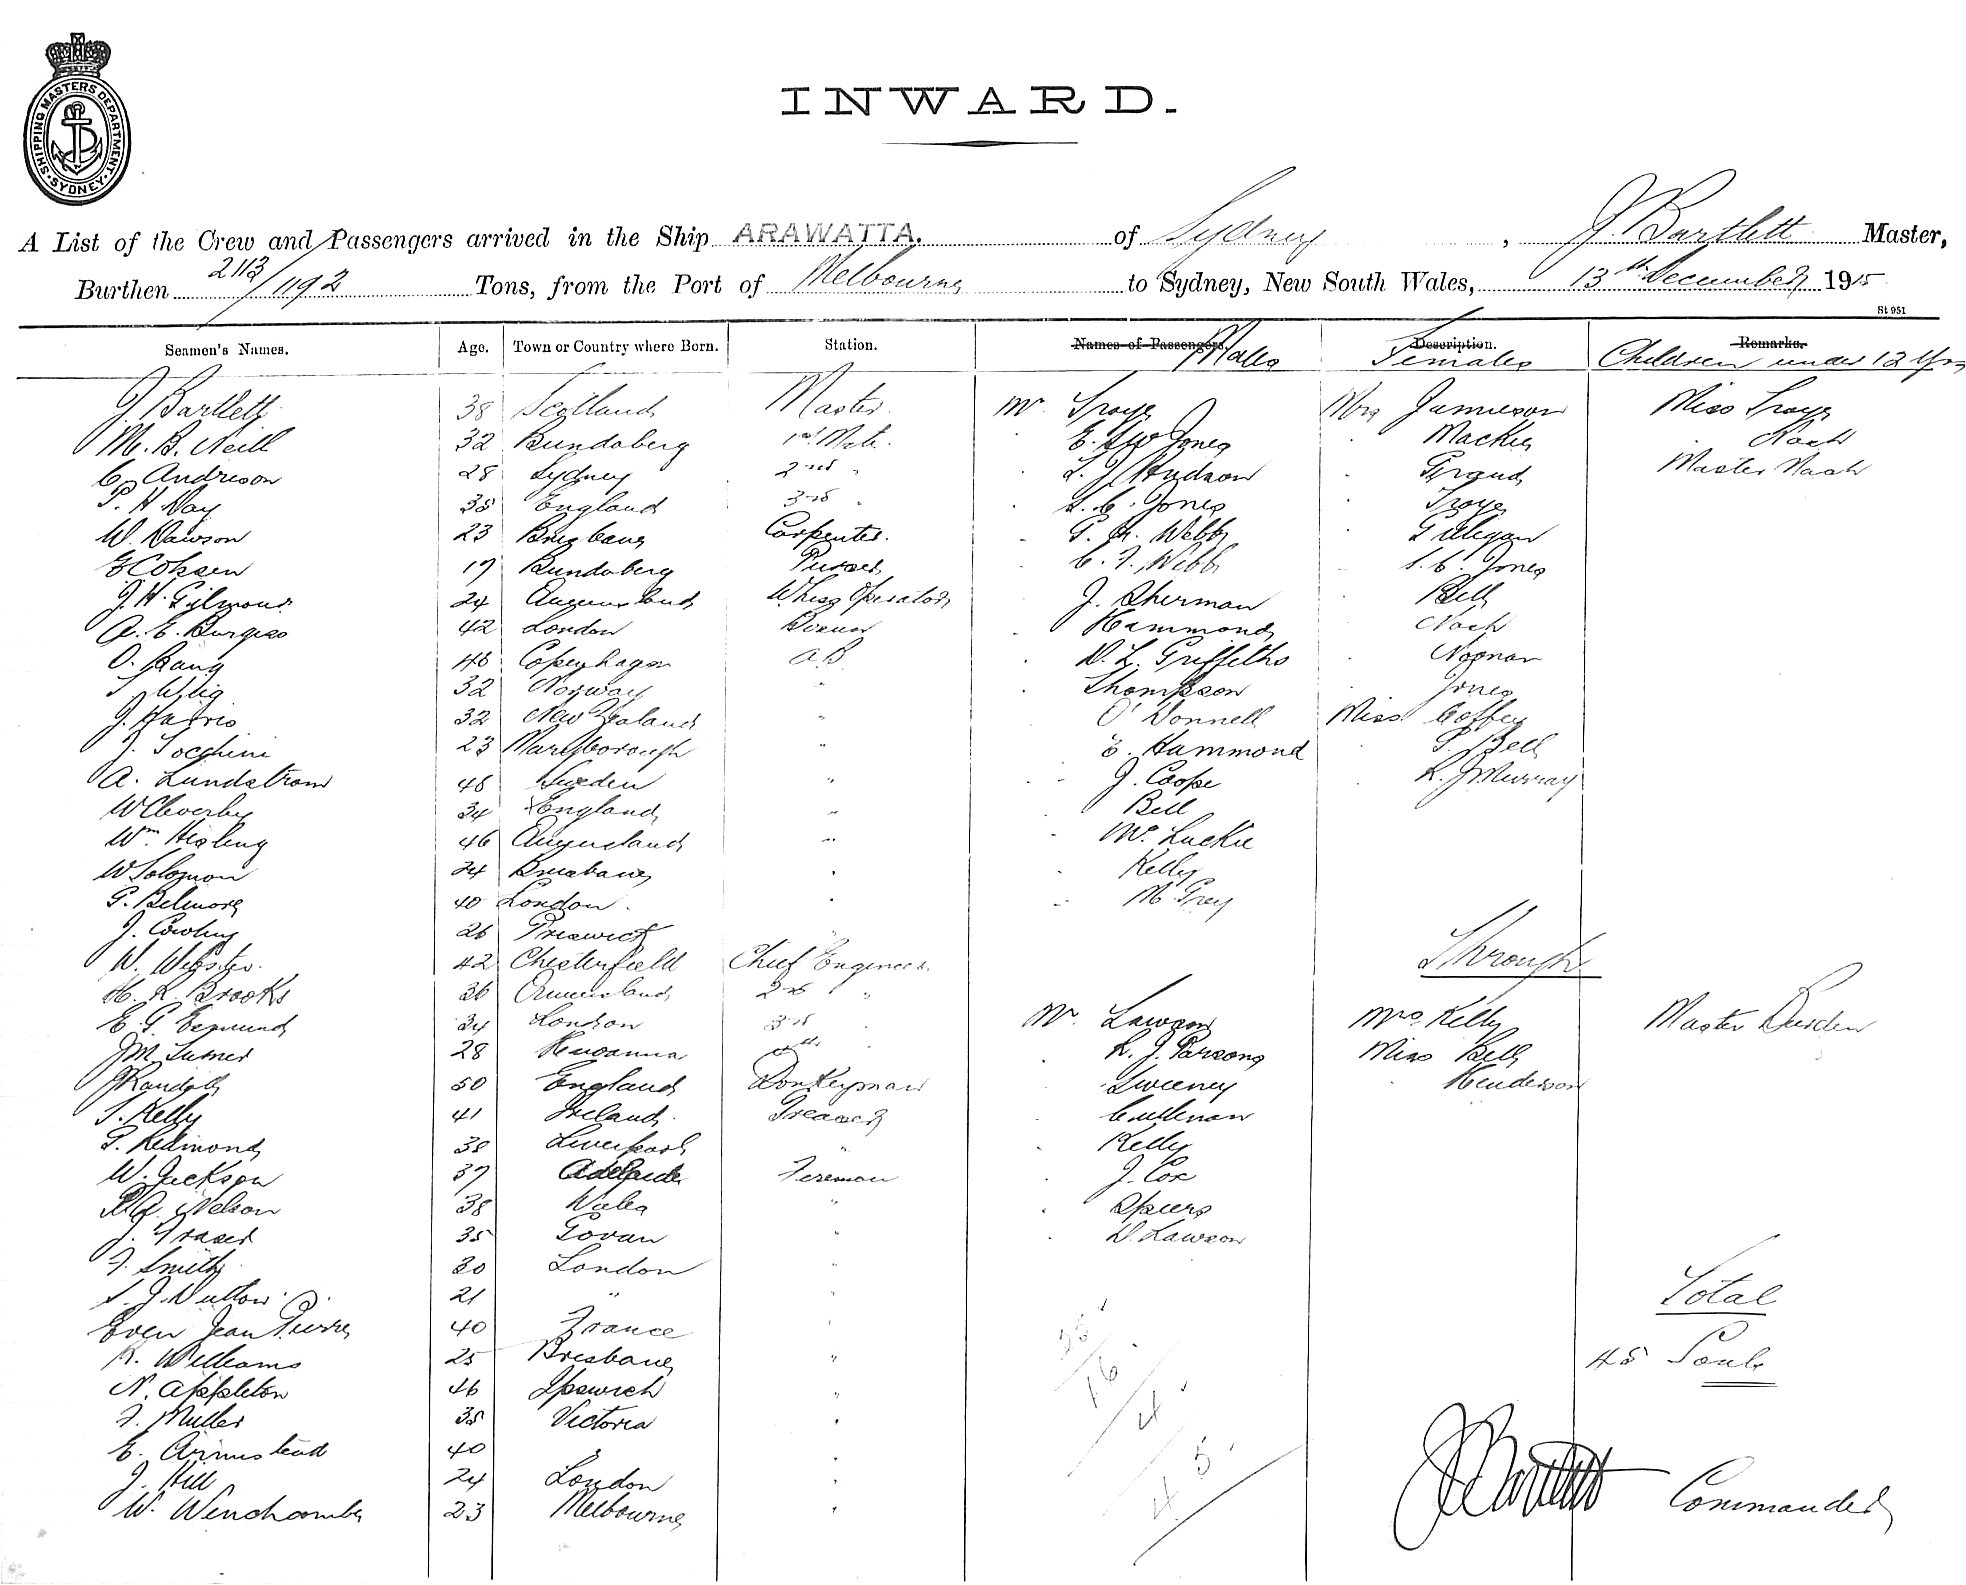 SHIPPING MASTERS DEPARTMENT. SYDNEY
INWARD.
A List of the Crew and Passengers arrived in the Ship ARAWATTA. of Sydney, J. Bartlett Master,
Burthen 2113/1192 Tons, from the Port of Melbourne to Sydney, New South Wales, 13th December 1915
St 951
Seamen's Names. Age. Town or Country where Born. Station. Names of Passengers. Males Description. Females Remarks. Children under 12 Yrs
J. Bartlett 38 Scotland Master Mr Troye Mrs Jamieson Miss Troye
M. B. Neill 32 Bundaberg 1st Mate Jones Mackie Nash
C. Andreson 28 Sydney 2nd " L. J. Hudson Giraud Master Nash
P. H. Nay 35 England 3rd S. C. Jones Troye
W. Dawson 23 Brisbane Carpenter. G. H. Webb Gilligan
19 Bundaberg Purser C. F. Webb S. C. Jones
J. H. Gilmour 24 Queensland Wless Operator J. Sherman Bell
A. E. Burgess 42 London Bosun Hammond Nash
O. Bang 46 Copenhagen A.B. D. L. Griffiths Noonan
32 Norway " Thompson Jones
J. Harris 32 New Zealand " O'Donnell Miss Coffey
J. Tocchini 23 Maryborough " E. Hammond P. Bell
A. Lundstrom 46 Sweden " J. Coope L. J. Murray
W Cleverley 34 England " Bell
Wm. Higling 46 Queensland " McLuckie
W Solomon 24 Brisbane " Kelly
G. Belmore 40 London. " M Grey
J. Cowling 26 "
Through
W. Webster. 42 Chesterfield Chief Engineer.
H. R. Brooks 36 Queensland 2nd "
E. G. Edmunds 34 London 3rd Mr. Lawson Mrs. Kelly Master Burden
J M Turner 28 4th L. J. Parsons Miss Bell
J Randell 50 England Donkeyman Sweeney Henderson
T. Kelly 41 Ireland. Greaser Cullinan
G. Redmond 38 Liverpool " Kelly
W. Jackson 37 Adelaide Fireman J. Cox
Nelson 38 Wales " Spiers
J. Fraser 35 Govan " D. Lawson
F. Smith 30 London "
S. J. Dutton 21 " "
Total
Even Jean Pierre 40 France "
R. Williams 25 Brisbane " 45 Souls
N. Appleton 46 Ipswich "
F. Muller 35 Victoria "
E. Armistead 40
J. Hill 24 London "
W. Winchcombe 23 Melbourne "
25
16
4
45
J Bartlett Commander